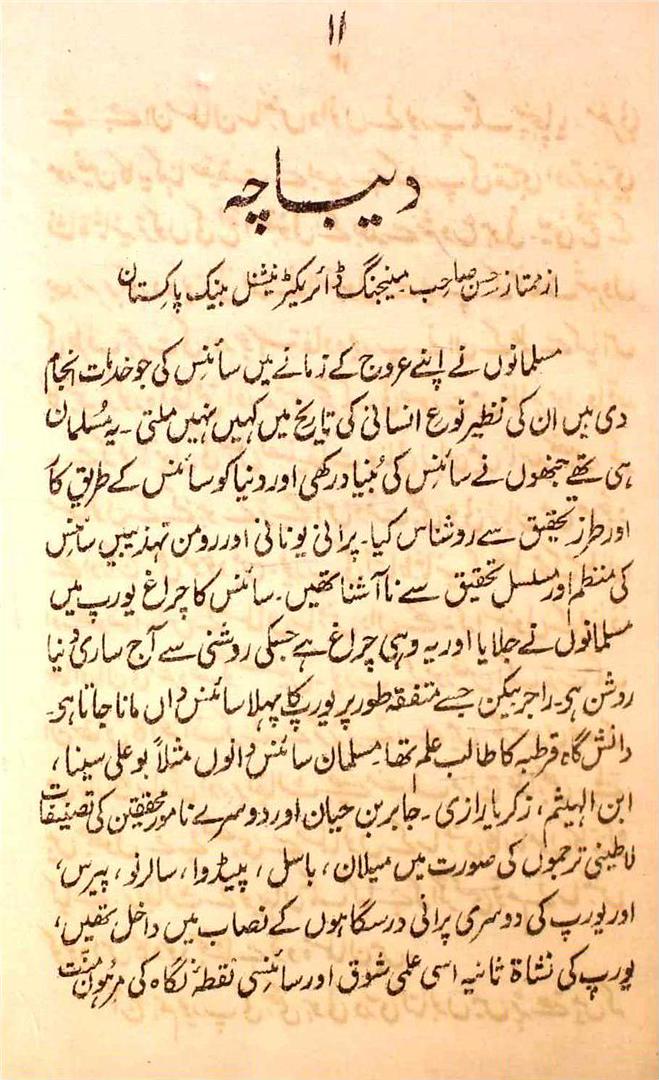 ۱۱
دیباچہ
از ممتاز حسن صاحب مینیجنگ ڈائریکٹر نیشنل بینک پاکستان
مسلمانوں نے اپنے عروج کے زمانے میں سائنس کی جو خدمات انجام
دی ہیں ان کی نظیر نوع انسانی کی تاریخ میں کہیں نہیں ملتی۔ یہ مُسلمان
ہی تھے جنھوں نے سائنس کی بُنیاد رکھی اور دنیا کو سائنس کے طریق کار
اور طرز تحقیق سے روشناس کیا۔ پرانی یونانی اور رومن تہذیبیں سائنس
کی منتظم اور مسلسل تحقیق سے ناآشنا تھیں۔ سائنس کا چراغ یورپ میں
مسلمانوں نے جلایا اور یہ وہی چراغ ہے جسکی روشنی سے آج ساری دُنیا
روشن ہی۔ راجر بیکن جسے متفقہ طور پر یورپ کا پہلا سائنس داں مانا جاتا ہی۔
دانش گاہ قرطبہ کا طالب علم تھا۔ مسلمان سائنس دانوں مثلاً بو علی سینا،
ابن الہیثم، زکریا رازی۔ جابر بن حیان اور دوسرے نامور محققین کی تصنیفات
لاطینی ترجموں کی صورت میں میلان، باسل، پیڈوا، سالرنو، پیرس،
اور یورپ کی دوسری پرانی درسگاہوں کے نصاب میں داخل تھیں،
یورپ کی نشاۃ ثانیہ اسی علمی شوق اور سائنسی نقطۂ نگاہ کی مرہون منّت